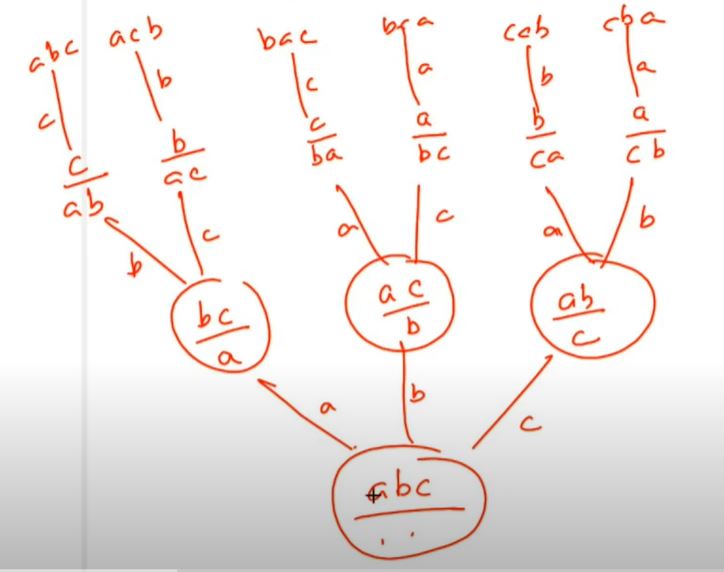 abc acb bac bca cab cba
c b c a b a
c b c a b a
ab ac ba bc ca cb
b c a c a b
bc ac ab
a b c
a b c
abc
. .